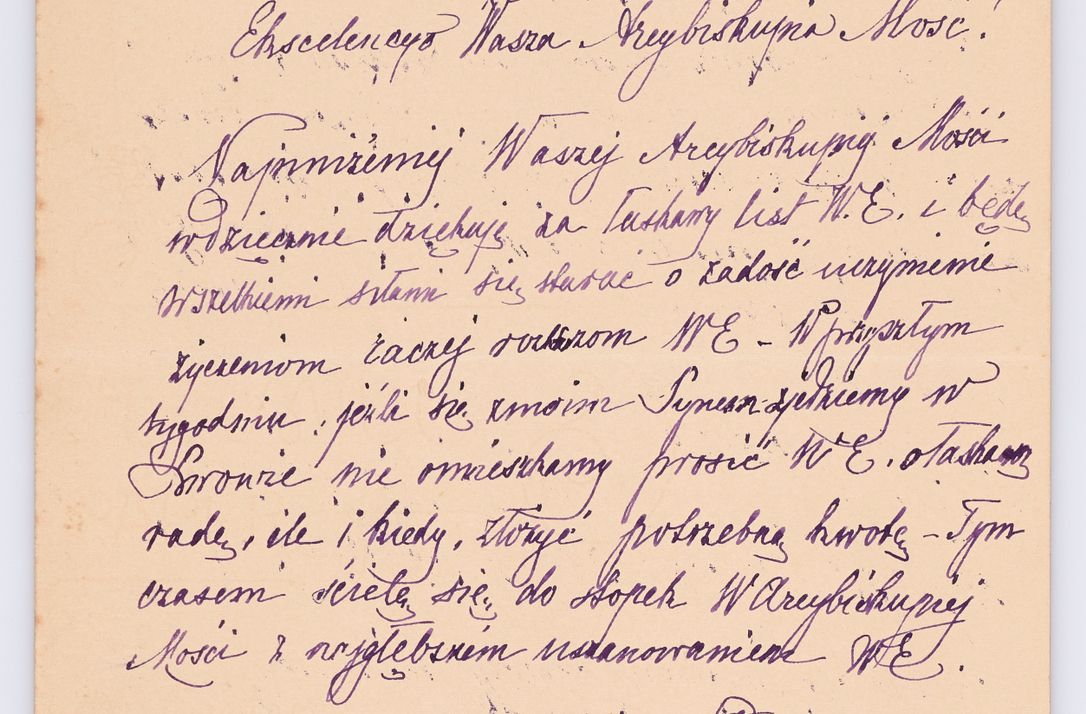 Ekscelencyo Wasza Arcybiskupia Mość!
Najuniżeniej Waszej Arcybiskupiej Mości
wdzięcznie dziękuję za łaskawy list W.E. i będę
wszelkiemi siłami się starać o zadość uczynienie
życzeniom raczej rozkazom WE – W przyszłym
tygodniu, jeźli się z moim Synem zjedziemy w
Lwowie nie omieszkamy prosić WE. o łaskawą
radę, ile i kiedy, złożyć potrzebną kwotę – Tym
czasem ścielę się do stopek W Arcybiskupiej
Mości z najgłębszém uszanowaniem WE.